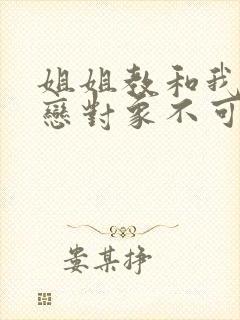 姐姐教和我
戀對象不可
娄某挣